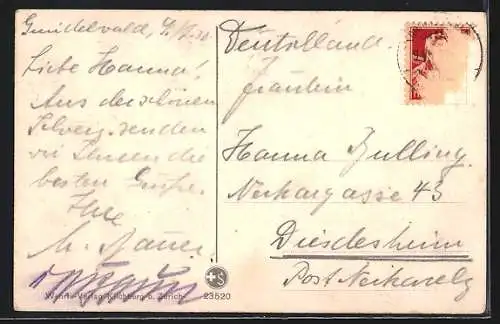 Grindelwald,
Liebe Hanna!
Aus der schönen
Schweiz senden
wir Ihnen die
besten Grüsse.
Ihre
Deutschland.
Fräulein
Hanna Bulling.
Neckargasse 43
Diedesheim
Post Neckarelz
Wehrli-Verlag, Kilchberg b. Zürich
23520